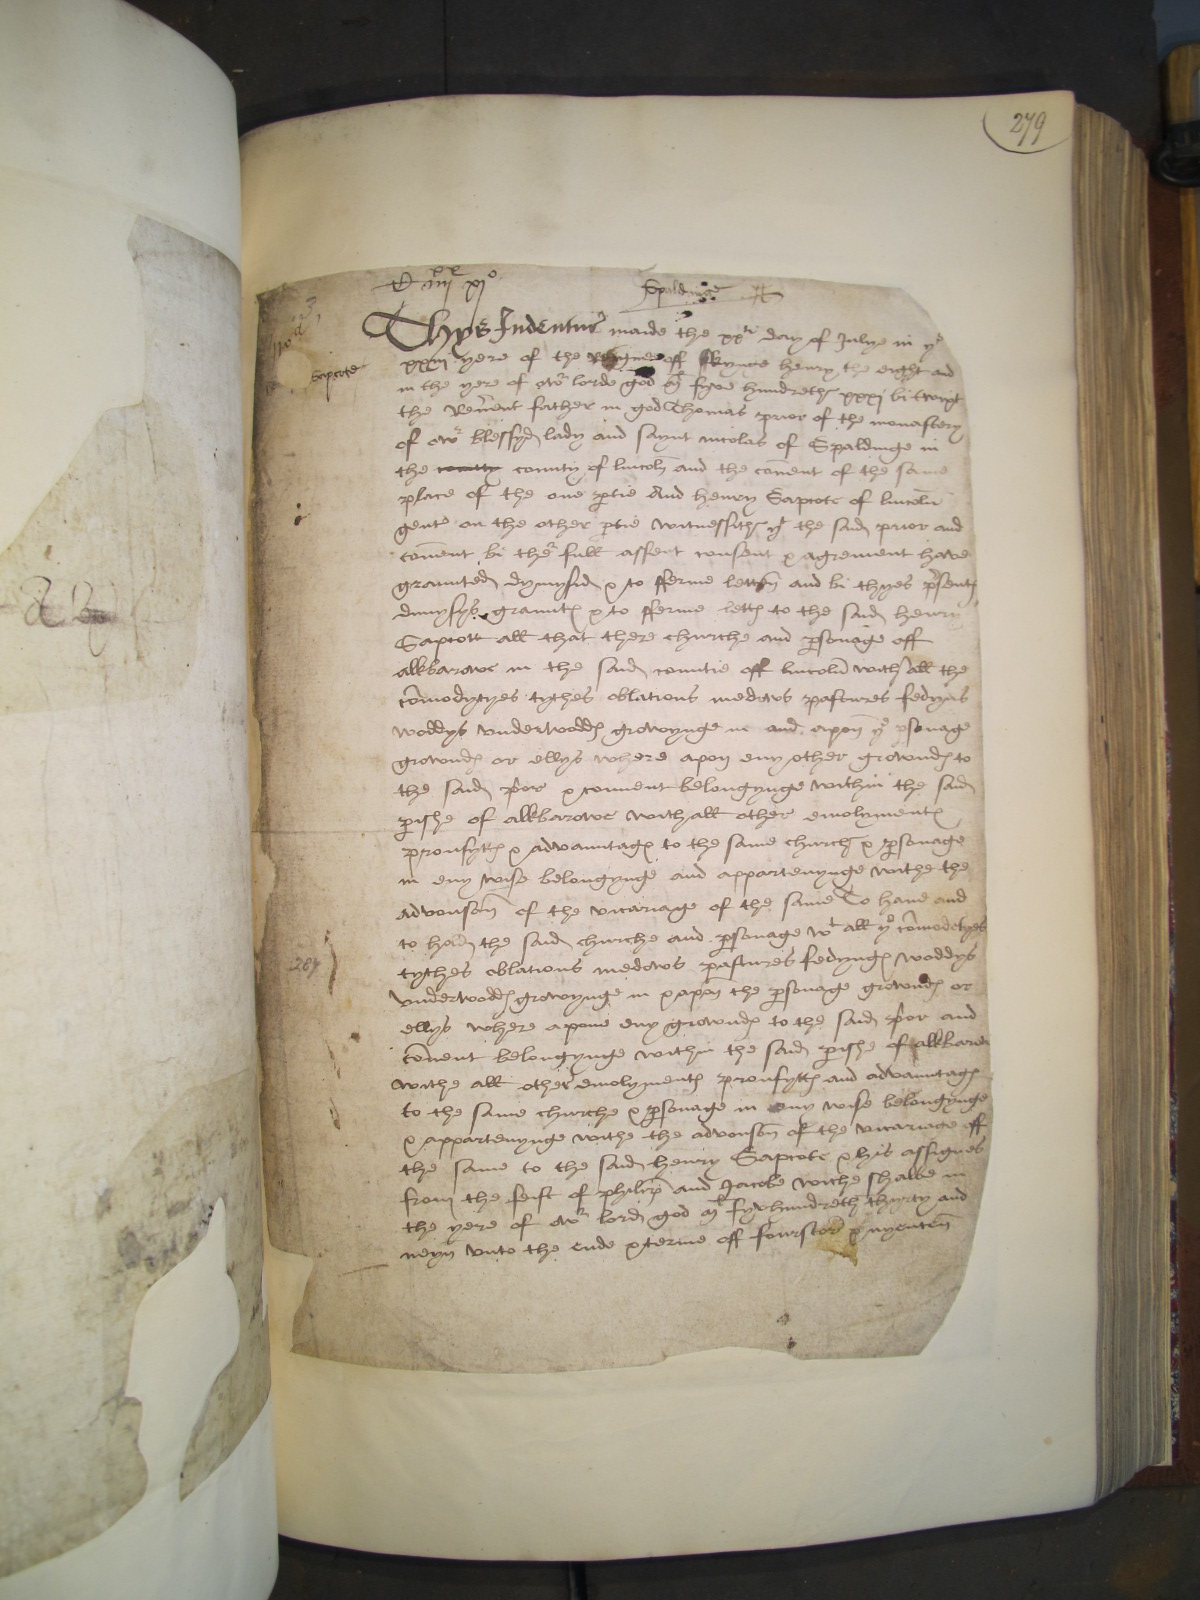 279
Spaldinge
Sapcote
Thys Indentur maide the xxti day of Julye in ye
xxiij yere of the reigne off kynge henry the eight and
in the yere of owr lorde god ml fyve hundreth xxxj bitwyxt
the Rev'ent father in god Thomas prior of the monastery
of owr blessyd lady and saynt nicolas of Spaldinge in
the county of lincoln and the co'uent of the same
place of the one p'tie And henry Sapcote of lincoln
gent' on the other p'tie witnessith yt the said prior and
co'uent bi ther full assent consent & agrement have
graunted dymysid & to fferme letten and bi thyes p'sent
dimysys graunt & to fferme lett to the said henry
Sapcott all that there churche and p'sonage off
alkbarowe in the said countie off lincoln with all the
co'modytyes tythes oblations medows pastures fedyngs
woddys underwodd growynge in and apon ye p'sonage
grownd or ellys where apon eny other grownd to
the said p'or & couuent belongynge within the said
p'ishe of alkbarowe with all other emolyment
proufytt & advauntag to the same church & p'sonage
in eny wise belongynge and appartenynge withe the
advouson of the vicariage of the same To haue and
to hold the said churche and p'sonage wt all ye co'modetyes
tythes oblations medows pastures fedyng woddys
underwodd growynge in & apon the p'sonage grownd or
ellys where apone eny grownd to the said p'or and
co'uent belongynge within the said p'ishe of alkbarow
withe all other emolyment proufytt and advauntag
to the same churche & p'sonage in eny wise belongynge
& appartenynge withe the advouson of the vicariage off
the same to the said henry Sapcote & his assignes
from the feist of philip and Jacobe wiche shalbe in
the yere of owr lord god ml fyvhundreth thyrty and
neyn unto the ende & terme off fowrscore & nyenten
267